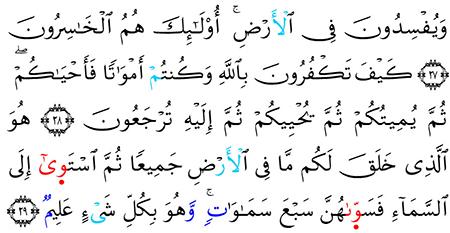 وَيُفْسِدُونَ فِى ٱلْأَرْضِ ۚ أُوْلَـٰٓئِكَ هُمُ ٱلْخَـٰسِرُونَ
٢٧ كَيْفَ تَكْفُرُونَ بِٱللَّهِ وَكُنتُمْ أَمْوَٰتًا فَأَحْيَـٰكُمْ ۖ
ثُمَّ يُمِيتُكُمْ ثُمَّ يُحْيِيكُمْ ثُمَّ إِلَيْهِ تُرْجَعُونَ ٢٨ هُوَ
ٱلَّذِى خَلَقَ لَكُم مَّا فِى ٱلْأَرْضِ جَمِيعًا ثُمَّ ٱسْتَوَىٰٓ إِلَى
ٱلسَّمَآءِ فَسَوَّىٰهُنَّ سَبْعَ سَمَـٰوَٰتٍ ۚ وَّهُوَ بِكُلِّ شَىْءٍ عَلِيمٌ ٢٩